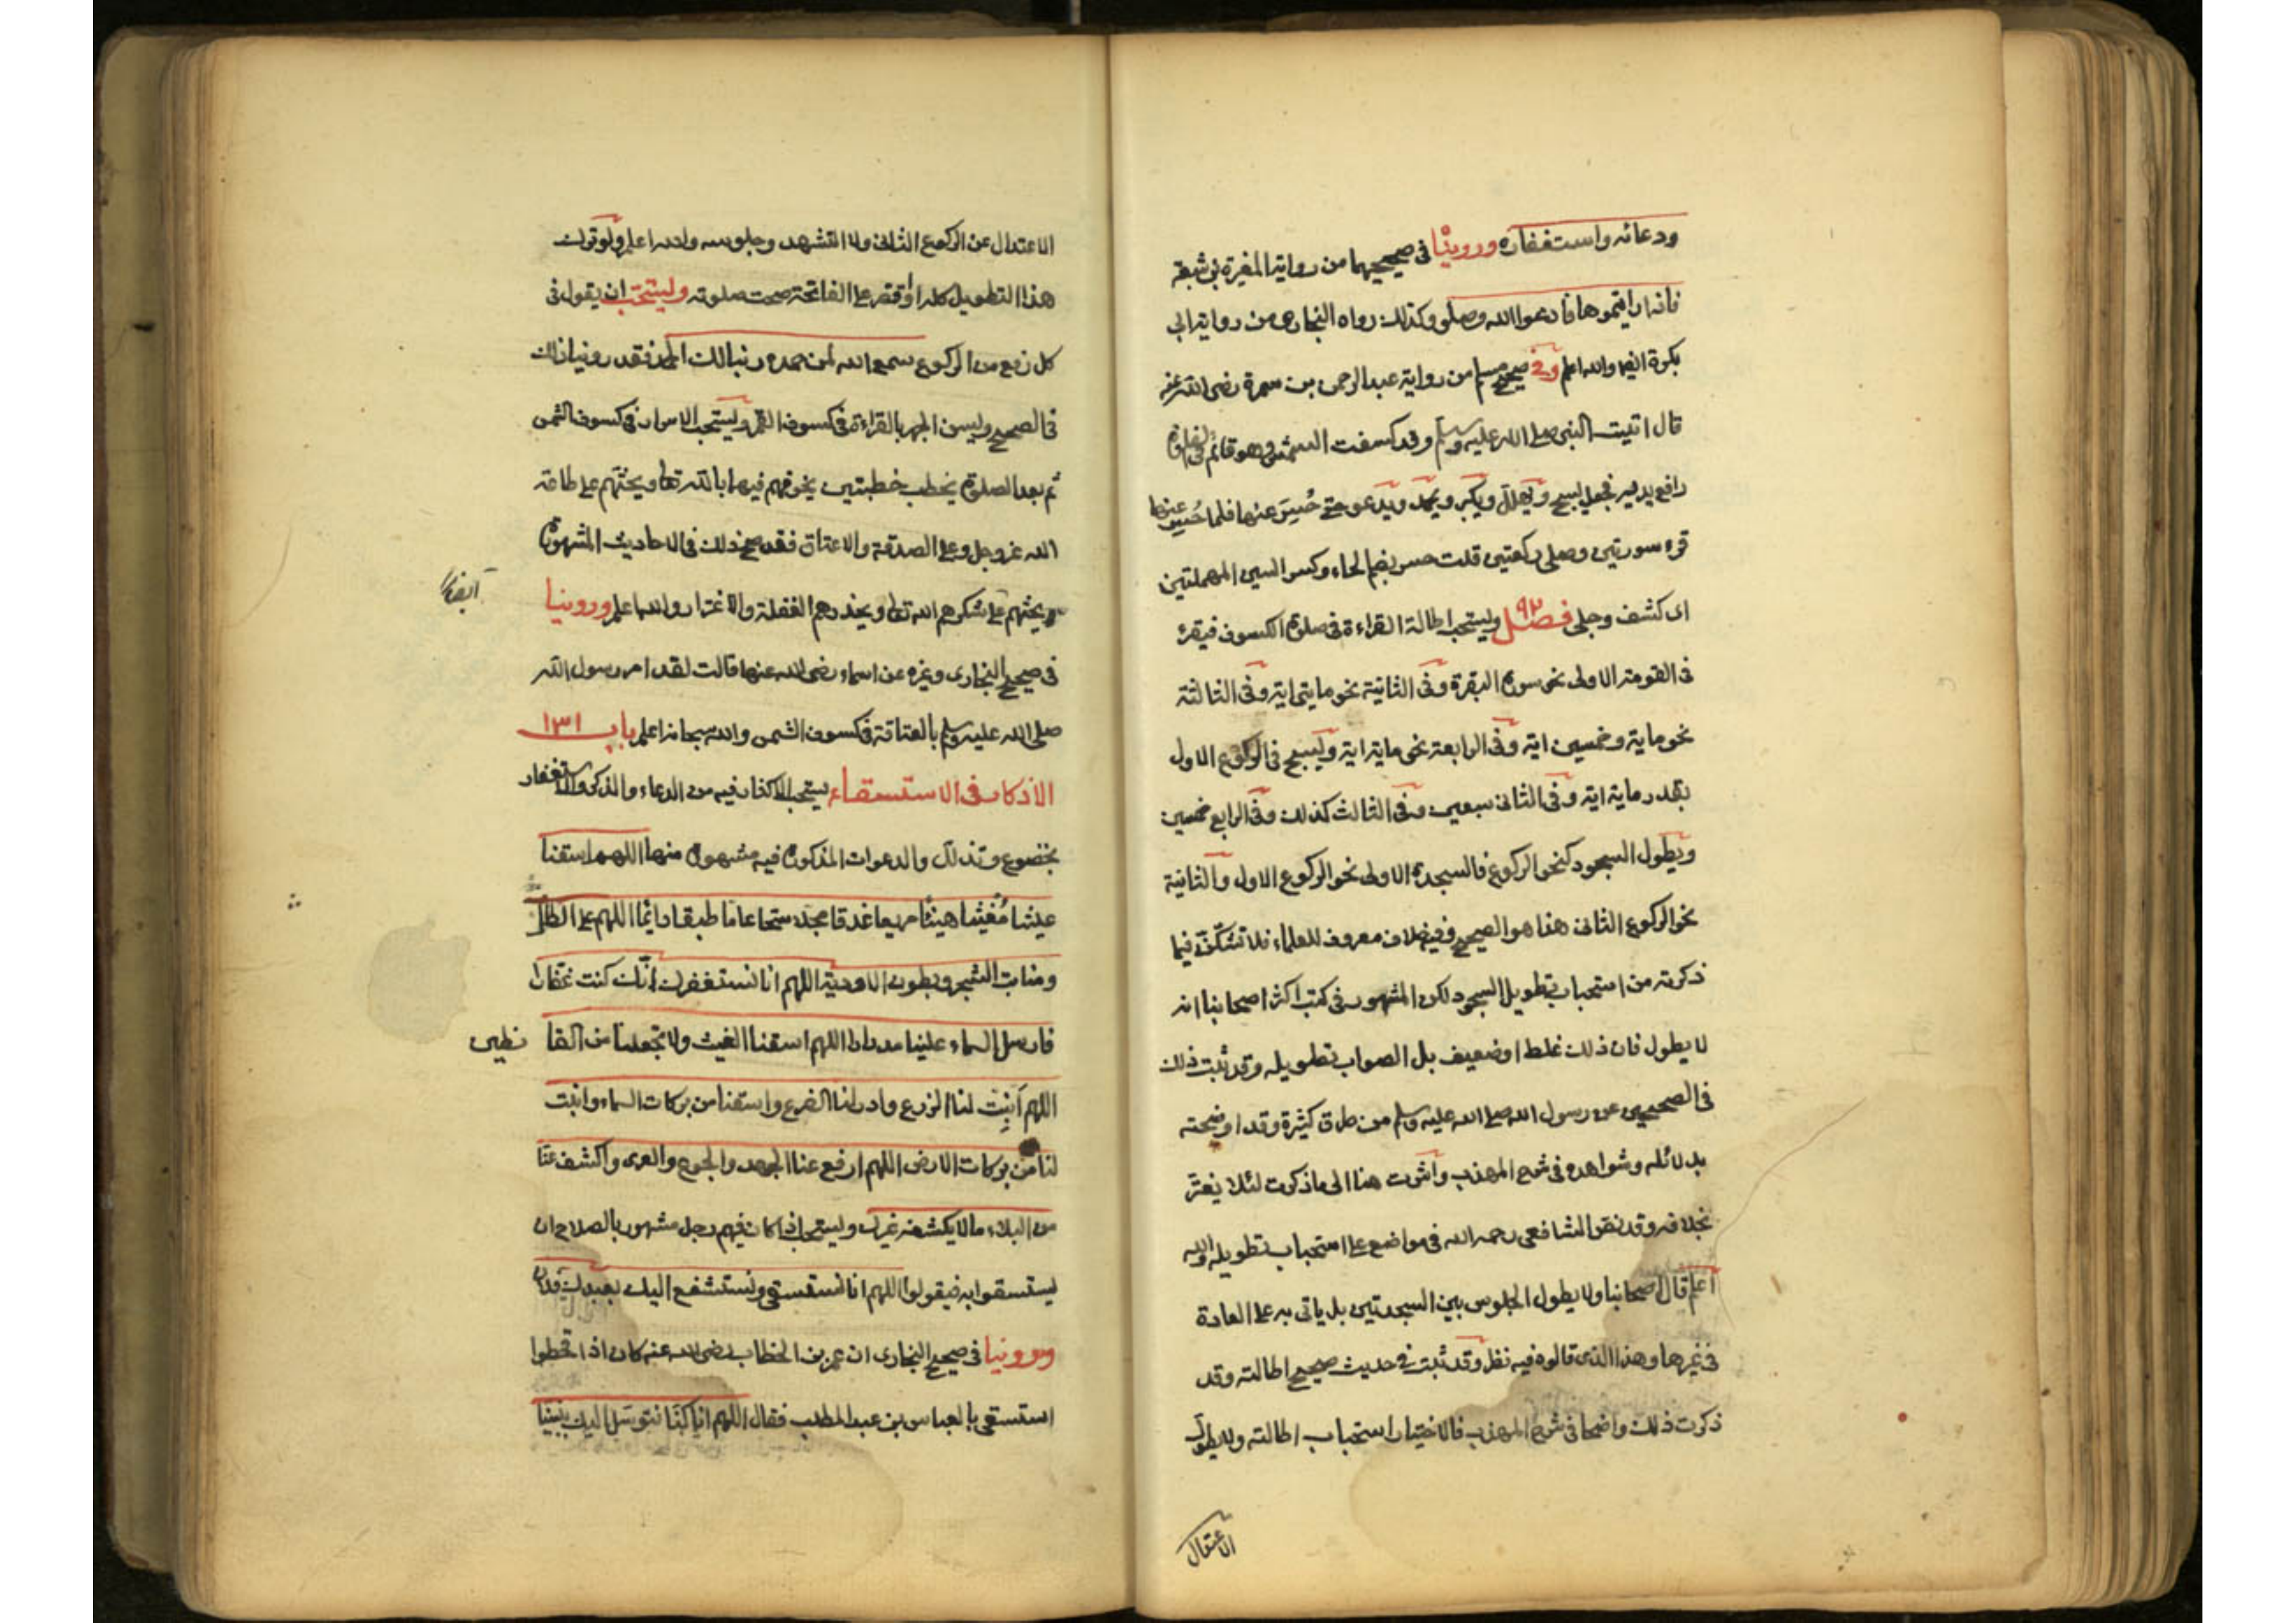 ودعائه واستغفاره وروينا في صحيحيهما من رواية المغيرة بن شعبة
فاذا رايتموها فادعوا الله وصلو وكذلك رواه البخاري من رواية ابي
بكرة ايضا والله اعلم وفي صحيح مسلم من رواية عبد الرحمن بن سمرة رضي الله عنه
قال اتيت النبي صلى الله عليه وسلم وقد كسفت الشمس وهو قائم في الصلوة
رافع يديه فجعل يسبح ويهلل ويكبر ويحمد ويدعو حتى حُسِرَ عنها فلما حُسِر عنها
قرء سورتين وصلى ركعتين قلت حسر بضم الحاء وكسر السين المهملتين
اى كشف وجلى فصل ٩٢ ويستحب اطالة القراءة في صلوة الكسوف فيقرء
في القومة الاولى نحو سورة البقرة وفي الثانية نحو مايتي اية وفي الثالثة
نحو ماية وخمسين اية وفي الرابعة نحو ماية اية ويسبح في الركوع الاول
بقدر ماية اية وفي الثاني سبعين وفي الثالث كذلك وفي الرابع خمسين
ويطول السجود كنحو الركوع فالسجدة الاولى نحو الركوع الاول والثانية
نحو الركوع الثاني هذا هو الصحيح وفيه خلاف معروف للعلماء فلا تشكّنّ فيما
ذكرته من استحباب تطويل السجود لكن المشهور في كتب اكثر اصحابنا انه
لا يطول فان ذلك غلط او ضعيف بل الصواب تطويله وقد ثبت ذلك
في الصحيحين عن رسول الله صلى الله عليه وسلم من طرق كثيرة وقد اوضحته
بدلائله وشواهده في شرح المهذب واشرت هنا الى ما ذكرت لئلا يغتر
بخلافه وقد نص الشافعي رحمه الله في مواضع على استحباب تطويله والله
اعلم قال اصحابنا ولا يطول الجلوس بين السجدتين بل ياتى به على العادة
في غيرها وهذا الذى قالوه فيه نظر وقد ثبت في حديث صحيح اطالته وقد
ذكرت ذلك واضحا في شرح المهذب فالاختيار استحباب اطالته ولا يطول
الاعتدال
الاعتدال عن الركوع الثاني ولا التشهد وجلوسه والله اعلم ولو ترك
هذا التطويل كله او اقتصر على الفاتحة صحت صلوته ويستحب ان يقول في
كل رفع من الركوع سمع الله لمن حمده ربنا لك الحمد فقد روينا ذلك
في الصحيح ويسن الجهر بالقراءة في كسوف القمر ويستحب الاسرار في كسوف الشمس
ثم بعد الصلوة يخطب خطبتين يخوفهم فيها بالله تعالى ويحثهم على طاعة
الله عز وجل وعلى الصدقة والاعتاق فقد صح ذلك في الاحاديث المشهورة
ويحثهم على شكرهم الله تعالى ويحذرهم الغفلة والاغترار والله اعلم وروينا
ايضا
في صحيح البخاري وغيره عن اسماء رضى الله عنها قالت لقد امر رسول الله
صلى الله عليه وسلم بالعتاقة في كسوف الشمس والله سبحانه اعلم باب ١٣١
الاذكار في الاستسقاء يستحب الاكثار فيه من الدعاء والذكر والاستغفار
بخضوع وتذلل والدعوات المذكورة فيه مشهورة منها اللهم اسقنا
غيثا مُغيثا هنيئا مريعا غدقا مجللا سحا عاما طبقا دائما اللهم على الظراب
ومنابت الشجر وبطون الاودية اللهم انا نستغفرك انّك كنت غفّارا
فارسل السماء علينا مدرارا اللهم اسقنا الغيث ولا تجعلنا من القا نطين
اللهم اَنبِت لنا الزرع وادر لنا الضرع واسقنا من بركات السماء وانبت
لنا من بركات الارض اللهم ارفع عنا الجهد والجوع والعرى واكشف عنّا
من البلاء ما لا يكشفه غيرك ويستحب اذا كان فيهم رجل مشهور بالصلاح ان
يستسقوا به فيقولوا اللهم انا نستسقي ونستشفع اليك بعبدك فلان
وروينا في صحيح البخاري ان عمر بن الخطاب رضى الله عنه كان اذا قحطوا
استسقى بالعباس بن عبد المطلب فقال اللهم انا كنّا نتوسّل اليك بنبينا